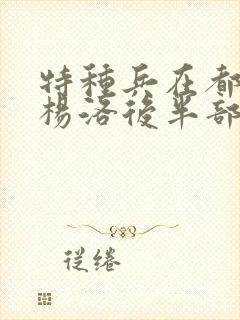 特種兵在都
楊洛後半部
從绻